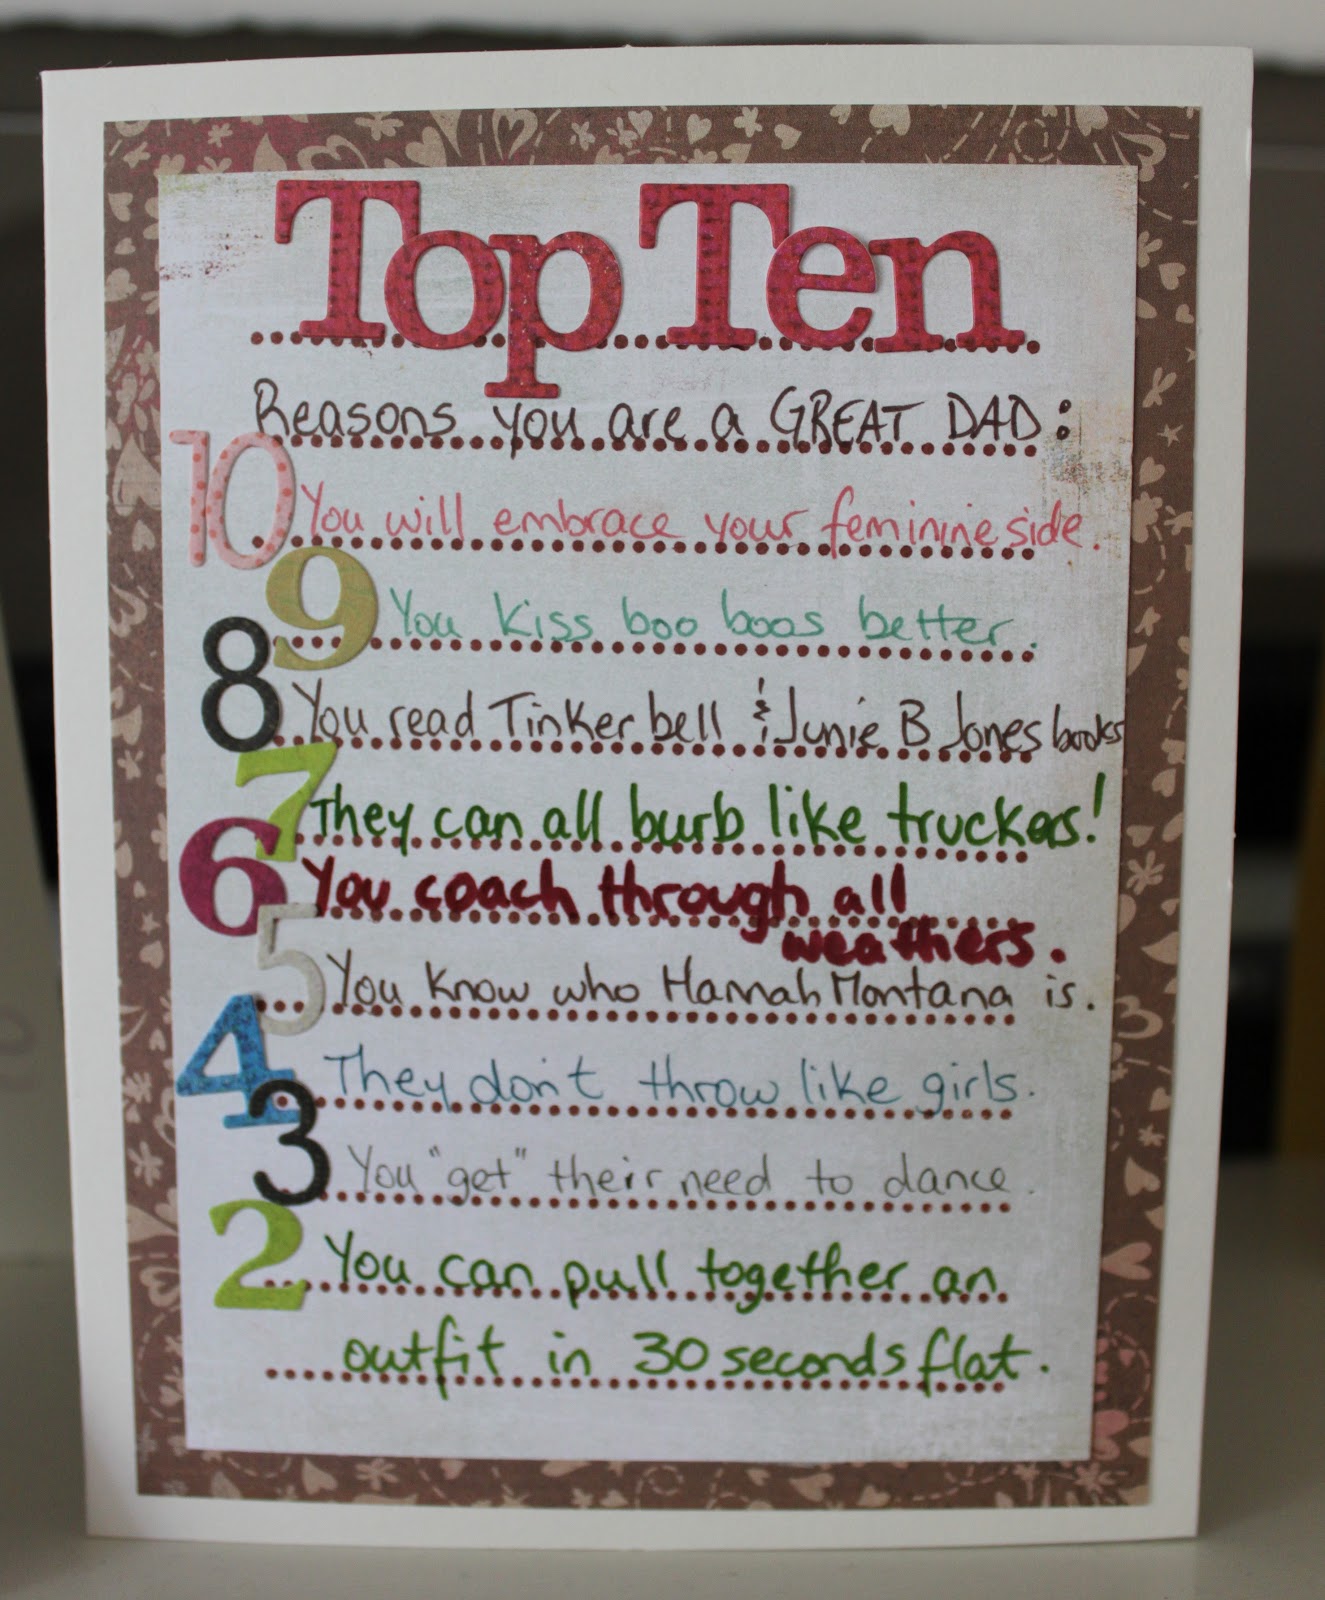 Top Ten
Reasons you are a GREAT DAD:
10 You will embrace your feminine side.
9 You kiss boo boos better.
8 You read Tinkerbell & Junie B Jones books
7 They can all burb like truckers!
6 You coach through all
weathers.
5 You know who Hannah Montana is.
4 They don't throw like girls.
3 You "get" their need to dance.
2 You can pull together an
outfit in 30 seconds flat.